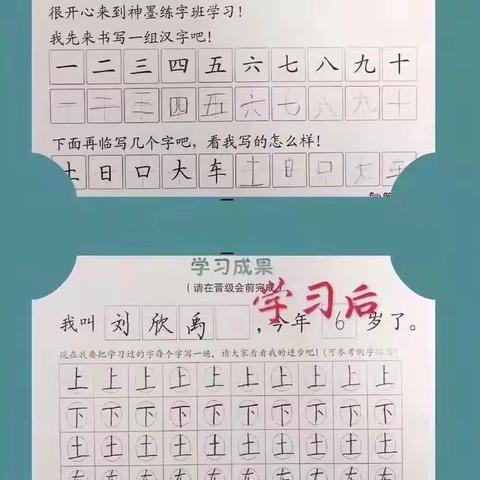 很开心来到神墨练字班学习！
我先来书写一组汉字吧！
一二三四五六七八九十
一二三四五六七八九十
下面再临写几个字吧，看我写的怎么样！
土日口大车土日口大车
学习成果
（请在晋级会前完成）
学习后
我叫刘欣禹，今年6岁了。
现在我要把学习过的字每个字写一遍，请大家看看我的进步吧！（可参考例字临写）
上上上上上上上上上上
下下下下下下下下下下
土土土土土土土土土土